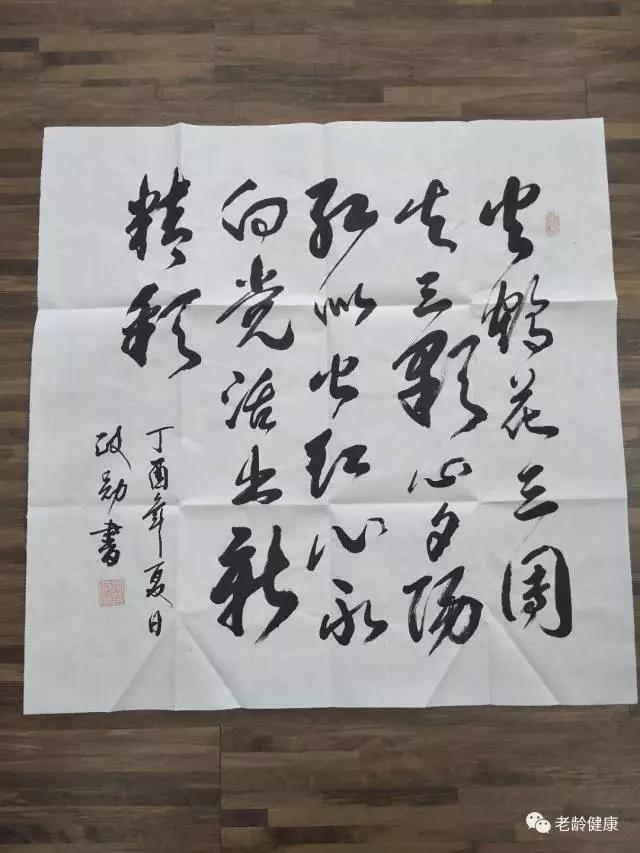 火鹤花三團
火三颗心夕陽
红似火红心永
向党活出新
精彩
丁酉年夏日
書
老龄健康